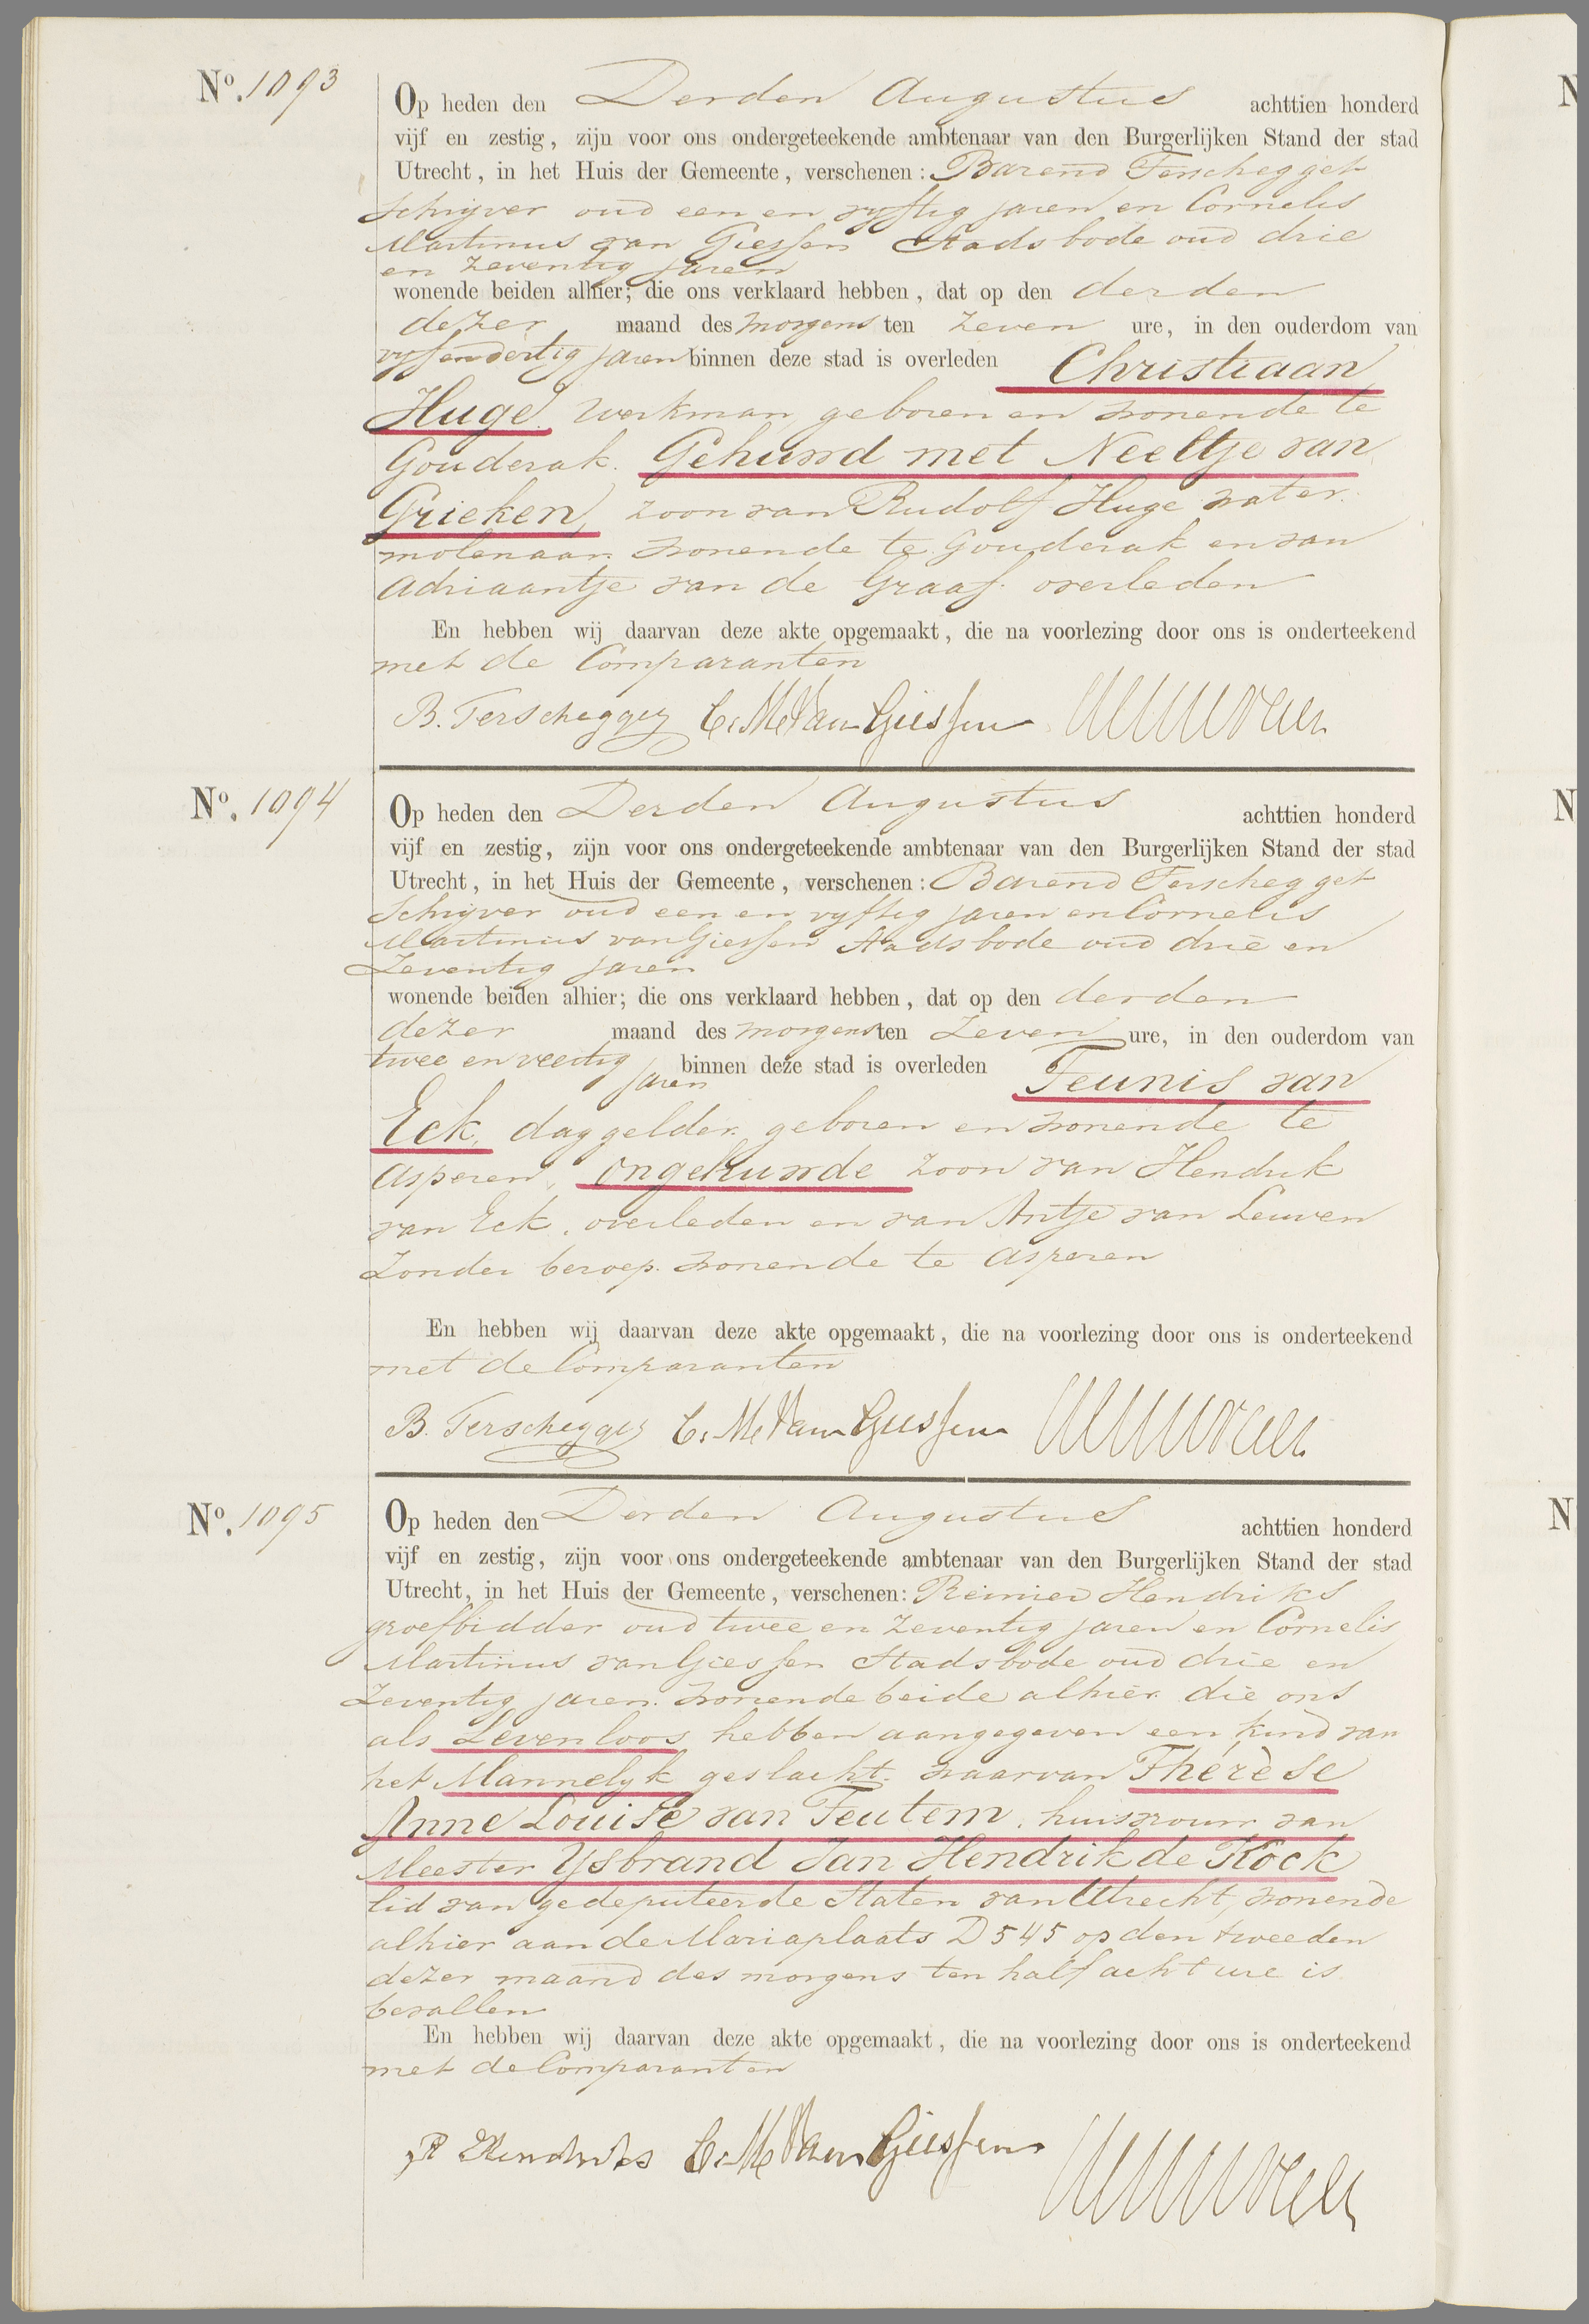 Nº. 1093
Op heden den Derden Augustus achttien honderd
vijf en zestig, zijn voor ons ondergeteekende ambtenaar van den Burgerlijken Stand der stad
Utrecht, in het Huis der Gemeente, verschenen: Barend Terschegget
Schrijver oud een en vyftig jaren en Cornelis
Martinus van Giessen Stadsbode oud drie
en zeventig jaren
wonende beiden alhier; die ons verklaard hebben, dat op den derden
dezer maand des morgens ten zeven ure, in den ouderdom van
vyfendertig jaren binnen deze stad is overleden Christiaan
Huge. Werkman geboren en wonende te
Gouderak. Gehuwd met Neeltje van
Grieken, zoon van Rudolf Huge water
molenaar wonende te Gouderak en van
Adriaantje van de Graaf overleden
En hebben wij daarvan deze akte opgemaakt, die na voorlezing door ons is onderteekend
met de Comparanten
B. Terschegget C. M. Van Giessen
Nº. 1094
Op heden den Derden Augustus achttien honderd
vijf en zestig, zijn voor ons ondergeteekende ambtenaar van den Burgerlijken Stand der stad
Utrecht, in het Huis der Gemeente, verschenen: Barend Terschegget
Schrijver oud een en vyftig jaren en Cornelis
Martinus van Giessen Stadsbode oud drie en
Zeventig jaren
wonende beiden alhier; die ons verklaard hebben, dat op den derden
dezer maand des morgens ten Zeven ure, in den ouderdom van
twee en veertig jaren binnen deze stad is overleden Teunis van
Eck, daggelder geboren en wonende te
Asperen, ongehuwde zoon van Hendrik
van Eck, overleden en van Antje van Leuven
Zonder beroep. wonende te Asperen
En hebben wij daarvan deze akte opgemaakt, die na voorlezing door ons is onderteekend
met de Comparanten
B. Terschegget C. M. Van Giessen
Nº. 1095
Op heden den Derden Augustus achttien honderd
vijf en zestig, zijn voor ons ondergeteekende ambtenaar van den Burgerlijken Stand der stad
Utrecht, in het Huis der Gemeente, verschenen: Reinier Hendriks
groefbidder oud twee en zeventig jaren en Cornelis
Martinus van Giessen Stadsbode oud drie en
Zeventig jaren. wonende beide alhier die ons
als Levenloos hebben aangegeven een kind van
het Mannelyk geslacht. waarvan Thérèse
Anne Louise van Teutem, huisvrouw van
Meester Ysbrand Jan Hendrik de Kock
lid van gedeputeerde Staten van Utrecht, wonende
alhier aan de Mariaplaats D 545 op den tweeden
dezer maand des morgens ten half acht ure is
bevallen
En hebben wij daarvan deze akte opgemaakt, die na voorlezing door ons is onderteekend
met de Comparanten
R Hendriks C. M. Van Giessen